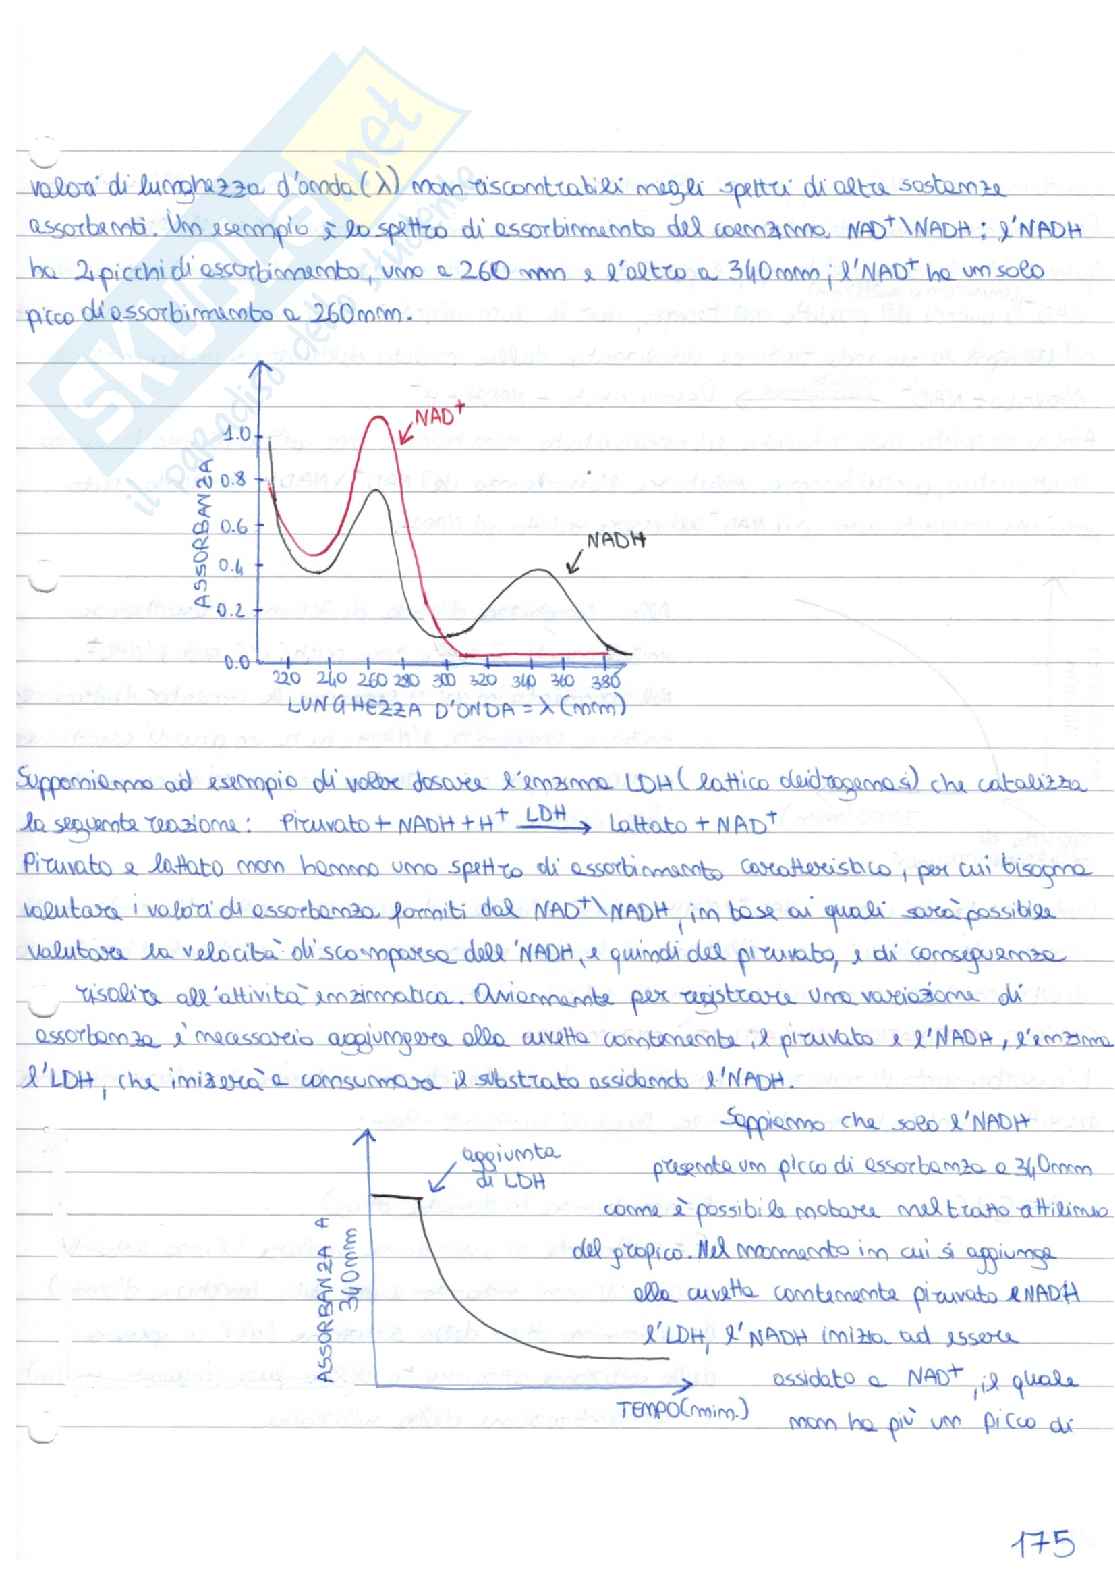 valori di lunghezza d'onda (λ) non riscontrabili negli spettri di altre sostanze
assorbenti. Un esempio è lo spettro di assorbimento del coenzima NAD⁺\NADH: l'NADH
ha 2 picchi di assorbimento, uno a 260 nm e l'altro a 340nm; l'NAD⁺ ha un solo
picco di assorbimento a 260nm.
SKUOLA.net
il paradiso dello studente
ASSORBANZA
1.0
0.8
0.6
0.4
0.2
0.0
NAD⁺
NADH
220 240 260 280 300 320 340 360 380
LUNGHEZZA D'ONDA = λ (nm)
Supponiamo ad esempio di voler dosare l'enzima LDH (lattico deidrogenasi) che catalizza
la seguente reazione: Piruvato + NADH + H⁺ LDH→ Lattato + NAD⁺
Piruvato e lattato non hanno uno spettro di assorbimento caratteristico, per cui bisogna
valutare i valori di assorbanza forniti dal NAD⁺\NADH, in base ai quali sarà possibile
valutare la velocità di scomparsa dell'NADH, e quindi del piruvato, e di conseguenza
risalire all'attività enzimatica. Ovviamente per registrare una variazione di
assorbanza è necessario aggiungere alla cuvetta contenente il piruvato e l'NADH, l'enzima
l'LDH, che inizierà a consumare il substrato ossidando l'NADH.
ASSORBANZA A
340nm
aggiunta
di LDH
TEMPO (min.)
Sappiamo che solo l'NADH
presenta un picco di assorbanza a 340nm
come è possibile notare nel tratto rettilineo
del grafico. Nel momento in cui si aggiunge
alla cuvetta contenente piruvato e NADH
l'LDH, l'NADH inizia ad essere
ossidato a NAD⁺, il quale
non ha più un picco di
175